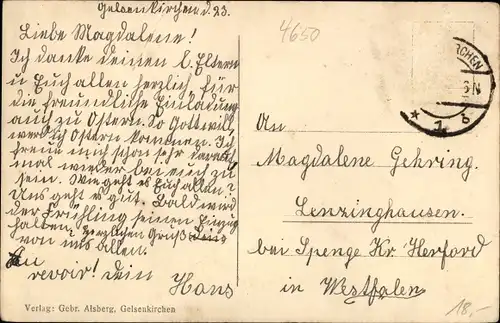 Gelsenkirchen d. 23.
4650
Liebe Magdalene!
Ich danke deinen l. Eltern
u Euch allen herzlich für
die freundliche Einladung
auch zu Ostern. So Gott will
werd ich Ostern kommen. Ich
freue mich schon sehr darauf
mal wieder bei euch zu
sein. Wie geht es Euch allen?
Uns geht es gut. Bald wird
der Frühling seinen Einzug
halten. Herzlichen Gruß
von uns allen.
Au
revoir! Dein
Hans
RCHEN
* 1 b
An
Magdalene Gehring.
Lenzinghausen.
bei Spenge Kr. Herford
in Westfalen
18,-
Verlag: Gebr. Alsberg, Gelsenkirchen